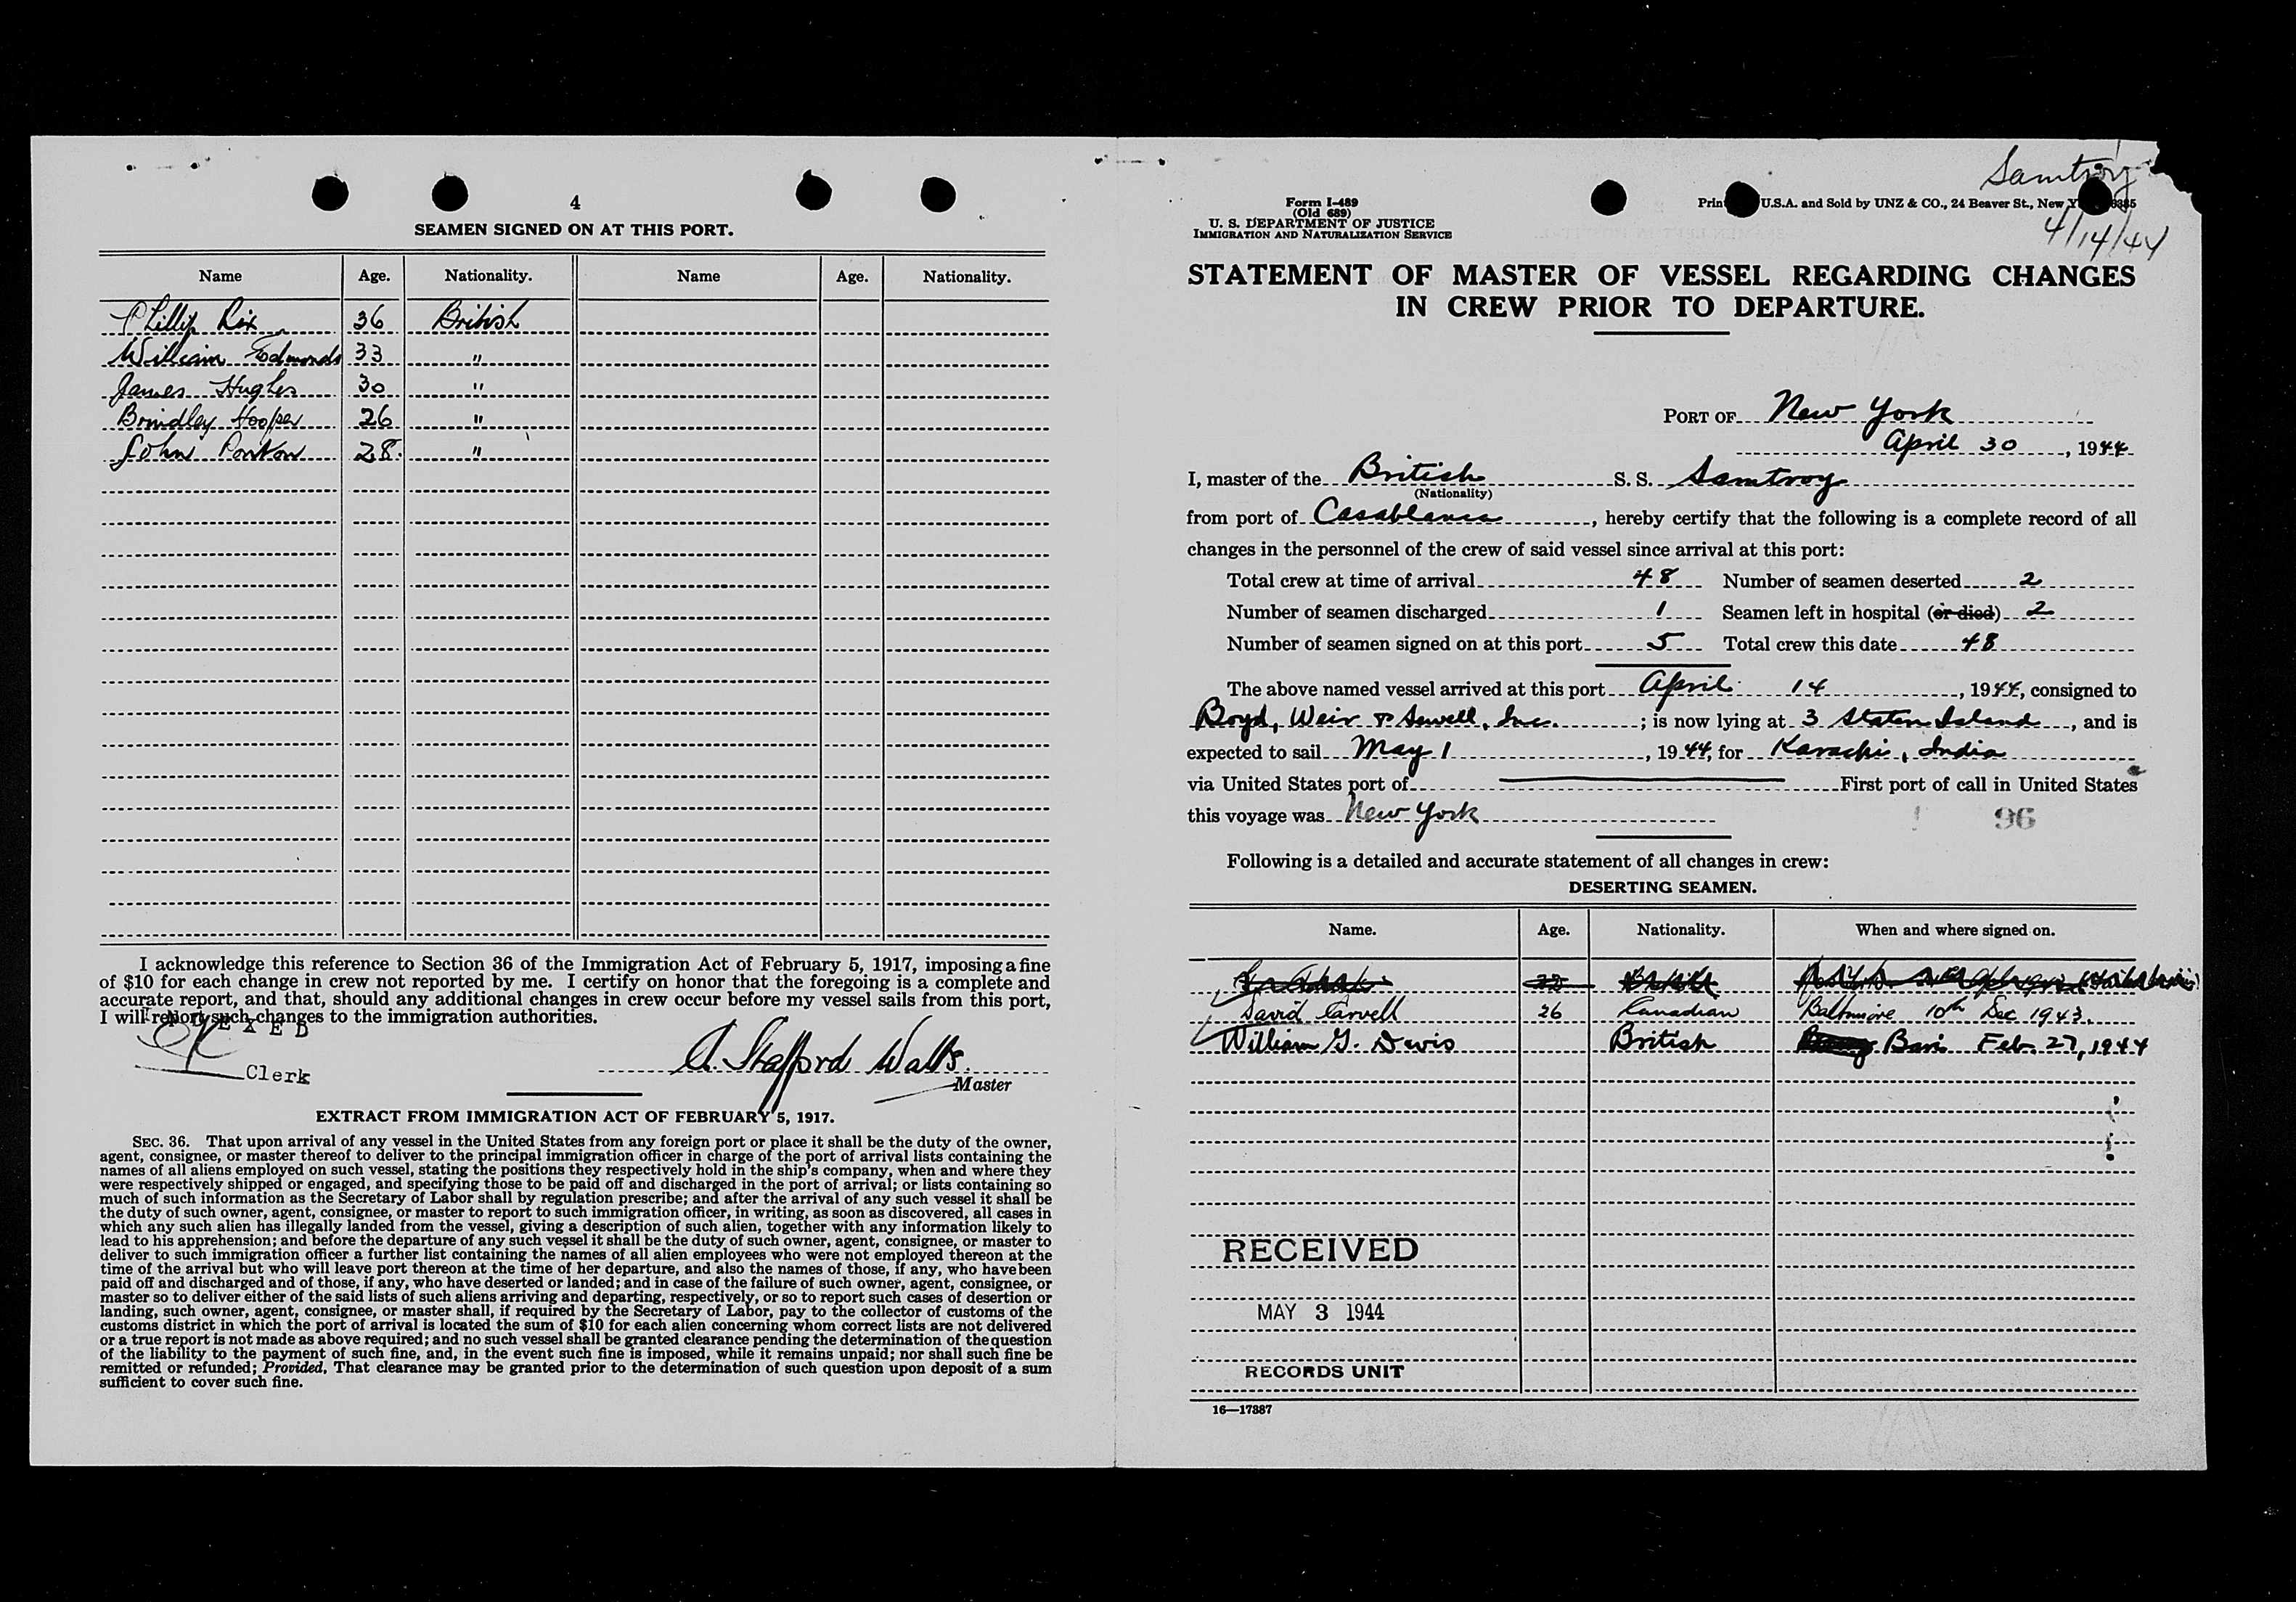 4
SEAMEN SIGNED ON AT THIS PORT.
Name Age. Nationality. Name Age. Nationality.
Phillip Rix 36 British
William Edmonds 33 "
James Hughes 30 "
Brindley Hooper 26 "
John 28. "
I acknowledge this reference to Section 36 of the Immigration Act of February 5, 1917, imposing a fine
of $10 for each change in crew not reported by me. I certify on honor that the foregoing is a complete and
accurate report, and that, should any additional changes in crew occur before my vessel sails from this port,
I will report such changes to the immigration authorities.
INDEXED
Clerk
A. Stafford Watts.
Master
EXTRACT FROM IMMIGRATION ACT OF FEBRUARY 5, 1917.
SEC. 36. That upon arrival of any vessel in the United States from any foreign port or place it shall be the duty of the owner,
agent, consignee, or master thereof to deliver to the principal immigration officer in charge of the port of arrival lists containing the
names of all aliens employed on such vessel, stating the positions they respectively hold in the ship's company, when and where they
were respectively shipped or engaged, and specifying those to be paid off and discharged in the port of arrival; or lists containing so
much of such information as the Secretary of Labor shall by regulation prescribe; and after the arrival of any such vessel it shall be
the duty of such owner, agent, consignee, or master to report to such immigration officer, in writing, as soon as discovered, all cases in
which any such alien has illegally landed from the vessel, giving a description of such alien, together with any information likely to
lead to his apprehension; and before the departure of any such vessel it shall be the duty of such owner, agent, consignee, or master to
deliver to such immigration officer a further list containing the names of all alien employees who were not employed thereon at the
time of the arrival but who will leave port thereon at the time of her departure, and also the names of those, if any, who have been
paid off and discharged and of those, if any, who have deserted or landed; and in case of the failure of such owner, agent, consignee, or
master so to deliver either of the said lists of such aliens arriving and departing, respectively, or so to report such cases of desertion or
landing, such owner, agent, consignee, or master shall, if required by the Secretary of Labor, pay to the collector of customs of the
customs district in which the port of arrival is located the sum of $10 for each alien concerning whom correct lists are not delivered
or a true report is not made as above required; and no such vessel shall be granted clearance pending the determination of the question
of the liability to the payment of such fine, and, in the event such fine is imposed, while it remains unpaid; nor shall such fine be
remitted or refunded; Provided, That clearance may be granted prior to the determination of such question upon deposit of a sum
sufficient to cover such fine.
Samtroy
4/14/44
Form I-489
(Old 689)
U. S. DEPARTMENT OF JUSTICE
IMMIGRATION AND NATURALIZATION SERVICE
U.S.A. and Sold by UNZ & CO., 24 Beaver St., New
STATEMENT OF MASTER OF VESSEL REGARDING CHANGES
IN CREW PRIOR TO DEPARTURE.
PORT OF New York
April 30, 1944
I, master of the British S. S. Samtroy
(Nationality)
from port of Casablanca, hereby certify that the following is a complete record of all
changes in the personnel of the crew of said vessel since arrival at this port:
Total crew at time of arrival 48 Number of seamen deserted 2
Number of seamen discharged 1 Seamen left in hospital (or died) 2
Number of seamen signed on at this port 5 Total crew this date 48
The above named vessel arrived at this port April 14, 1944, consigned to
Boyd, Weir & Sewell, Inc.; is now lying at 3 Staten Island, and is
expected to sail May 1, 1944, for Karachi, India
via United States port of First port of call in United States
this voyage was New York
96
Following is a detailed and accurate statement of all changes in crew:
DESERTING SEAMEN.
Name. Age. Nationality. When and where signed on.
British
David Carvell 26 Canadian Baltimore 10th Dec 1943.
William G. Davis British Bari Feb. 27, 1944
RECEIVED
MAY 3 1944
RECORDS UNIT
16—17387